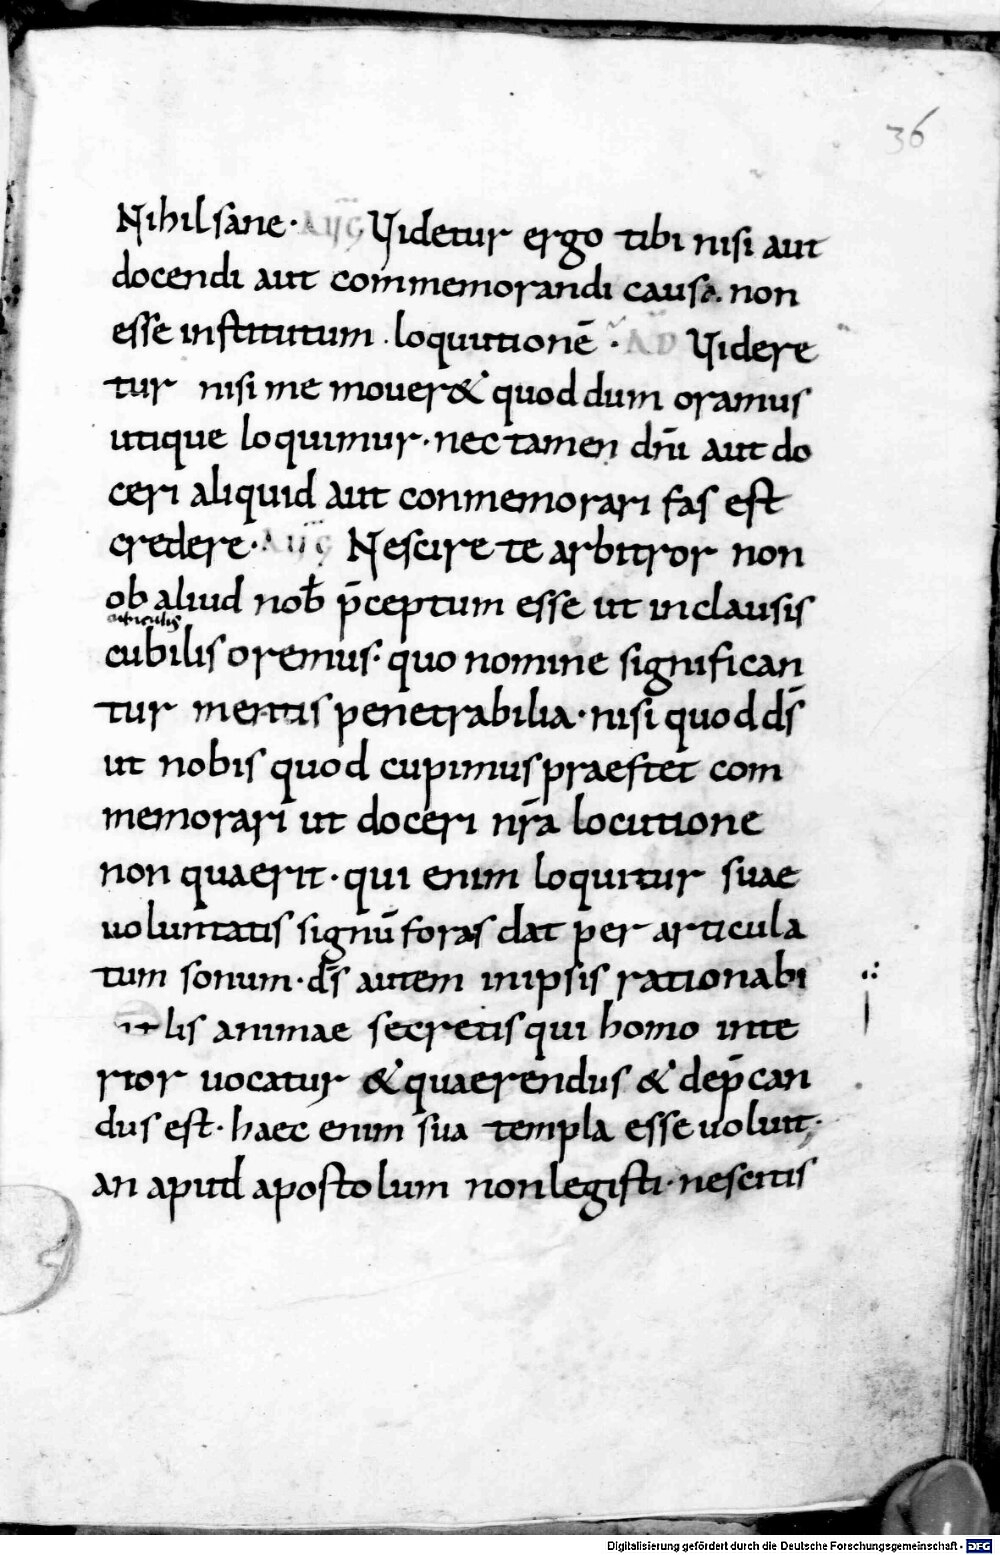 36
Nihil sane · AUG Videtur ergo tibi nisi aut
docendi aut commemorandi causa. non
esse institutum . loquutionē · AD Videre
tur nisi me mouer& quod dum oramus
utique loquimur · nec tamen dn̄i aut do
ceri aliquid aut conmemorari fas est
credere · AUG Nescire te arbitror non
ob aliud nob̄ p̄ceptum esse ut in clausis
cubilis oremus · quo nomine significan
tur mentis penetrabilia · nisi quod ds̄
ut nobis quod cupimus praestet com
memorari ut doceri nr̄a locutione
non quaerit · qui enim loquitur suae
voluntatis signū foras dat per articula
tum sonum · ds̄ autem in ipsis rationabi
lis animae secretis qui homo inte
rior uocatur & quaerendus & dep̄can
dus est · haec enim sua templa esse uoluit;
an apud apostolum non legisti · nescitis
Digitalisierung gefördert durch die Deutsche Forschungsgemeinschaft - DFG